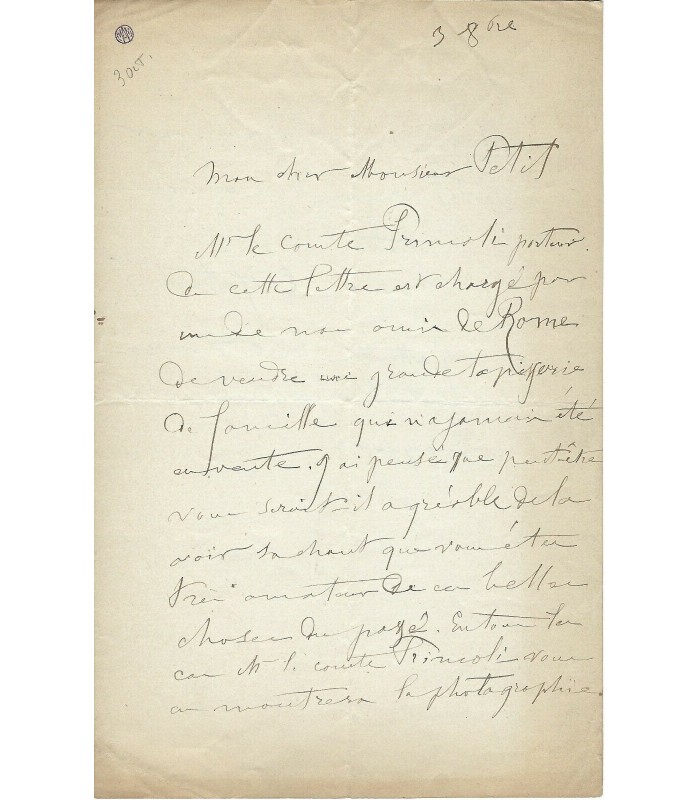 3 8bre
3 oct.
Mon cher Monsieur Petit
Mr le comte Primoli porteur
de cette lettre est chargé par
un de nos amis de Rome
de vendre une grande tapisserie
de famille qui n'a jamais été
en vente. J'ai pensé que peut être
vous serait-il agréable de la
voir sachant que vous êtes
très amateur de ces belles
choses du passé. En tous les
cas Mr le comte Primoli vous
en montrera la photographie.